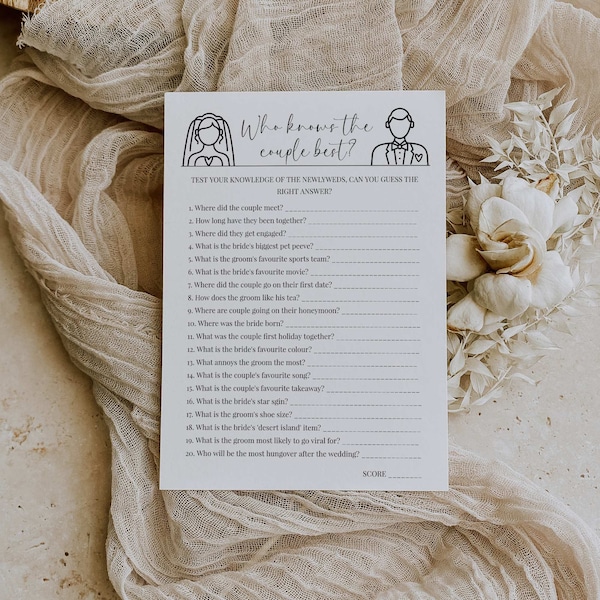 Who knows the
couple best?
TEST YOUR KNOWLEDGE OF THE NEWLYWEDS, CAN YOU GUESS THE
RIGHT ANSWER?
1. Where did the couple meet?
2. How long have they been together?
3. Where did they get engaged?
4. What is the bride's biggest pet peeve?
5. What is the groom's favourite sports team?
6. What is the bride's favourite movie?
7. Where did the couple go on their first date?
8. How does the groom like his tea?
9. Where are couple going on their honeymoon?
10. Where was the bride born?
11. What was the couple first holiday together?
12. What is the bride's favourite colour?
13. What annoys the groom the most?
14. What is the couple's favourite song?
15. What is the couple's favourite takeaway?
16. What is the bride's star sgin?
17. What is the groom's shoe size?
18. What is the bride's 'desert island' item?
19. What is the groom most likely to go viral for?
20. Who will be the most hungover after the wedding?
SCORE